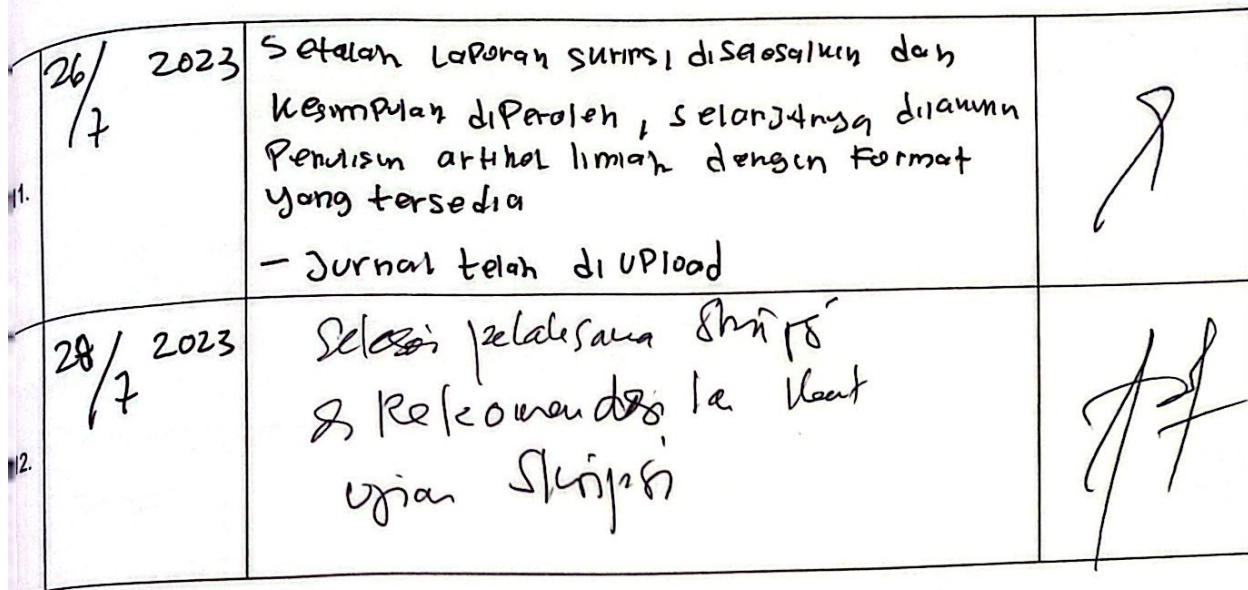 11.
26/7 2023
Setelah Laporan skripsi diselesaikan dan
kesimpulan diperoleh, selanjutnya dilakukan
Penulisan artikel ilmiah dengan Format
yang tersedia
- Jurnal telah di UPload
12.
28/7 2023
Selesai pelaksana Skripsi
& Rekomendasi ke
ujian Skripsi